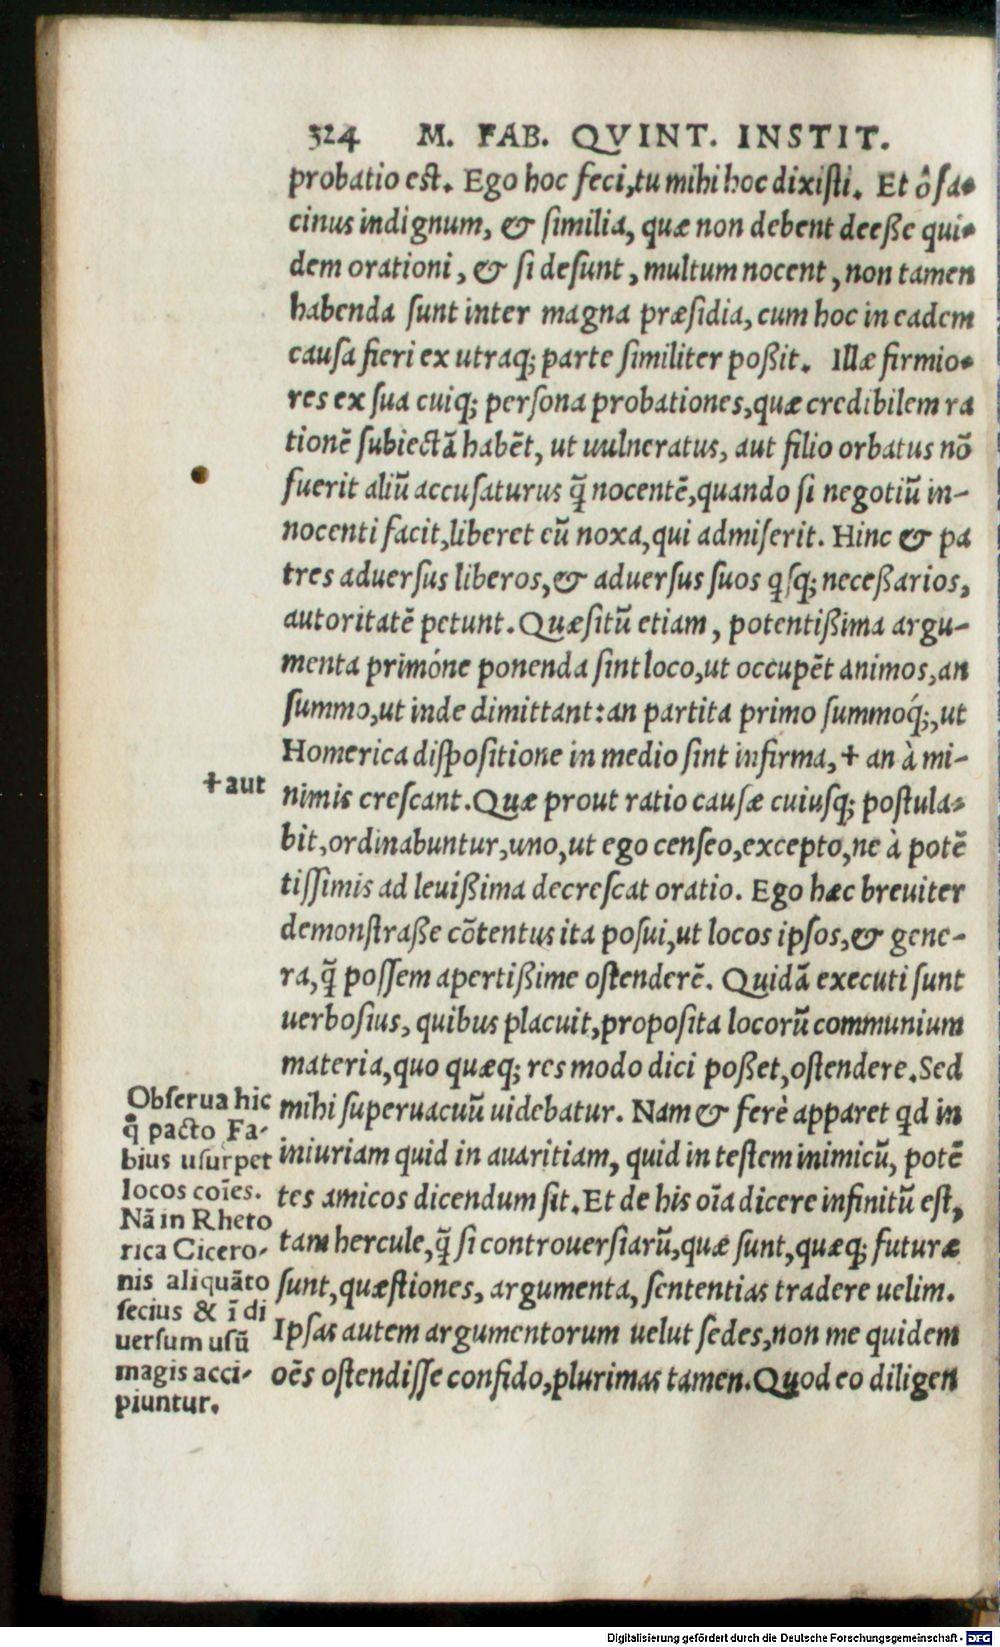 324 M. FAB. QVINT. INSTIT.
probatio est. Ego hoc feci, tu mihi hoc dixisti. Et ô fa-
cinus indignum, & similia, quæ non debent deeße qui-
dem orationi, & si desunt, multum nocent, non tamen
habenda sunt inter magna præsidia, cum hoc in eadem
causa fieri ex utraq; parte similiter poßit. Illæ firmio-
res ex sua cuiq; persona probationes, quæ credibilem ra
tionẽ subiectã habẽt, ut uulneratus, aut filio orbatus nõ
fuerit aliũ accusaturus q̃ nocentẽ, quando si negotiũ in-
nocenti facit, liberet eũ noxa, qui admiserit. Hinc & pa
tres aduersus liberos, & aduersus suos qsq; neceßarios,
autoritatẽ petunt. Quæsitũ etiam, potentißima argu-
menta primóne ponenda sint loco, ut occupẽt animos, an
summo, ut inde dimittant: an partita primo summoq́;, ut
Homerica dispositione in medio sint infirma, + an à mi-
+ aut
nimis crescant. Quæ prout ratio causæ cuiusq; postula-
bit, ordinabuntur, uno, ut ego censeo, excepto, ne à potẽ
tissimis ad leuißima decrescat oratio. Ego hæc breuiter
demonstraße cõtentus ita posui, ut locos ipsos, & gene-
ra, q̃ possem apertißime ostenderẽ. Quidã executi sunt
uerbosius, quibus placuit, proposita locorũ communium
materia, quo quæq; res modo dici poßet, ostendere. Sed
mihi superuacuũ uidebatur. Nam & ferè apparet qd in
iniuriam quid in auaritiam, quid in testem inimicũ, potẽ
tes amicos dicendum sit. Et de his oĩa dicere infinitũ est,
tam hercule, q̃ si controuersiarũ, quæ sunt, quæq; futuræ
sunt, quæstiones, argumenta, sententias tradere uelim.
Ipsas autem argumentorum uelut sedes, non me quidem
oẽs ostendisse confido, plurimas tamen. Quod eo diligen
Obserua hic
q̃ pacto Fa-
bius usurpet
locos coĩes.
Nã in Rheto
rica Cicero-
nis aliquãto
secius & ĩ di
uersum usũ
magis acci-
piuntur.
Digitalisierung gefördert durch die Deutsche Forschungsgemeinschaft - DFG